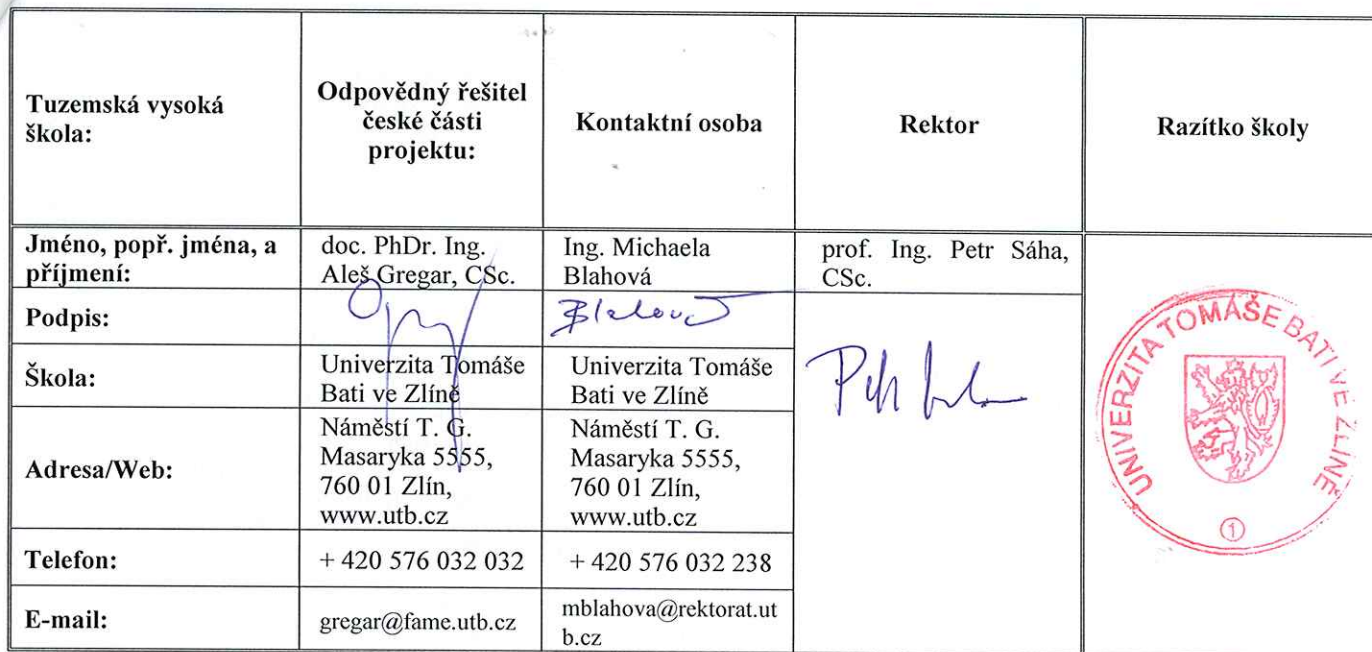 Tuzemská vysoká
škola:
Odpovědný řešitel
české části
projektu:
Kontaktní osoba
Rektor
Razítko školy
Jméno, popř. jména, a
příjmení:
doc. PhDr. Ing.
Aleš Gregar, CSc.
Ing. Michaela
Blahová
prof. Ing. Petr Sáha,
CSc.
Podpis:
Blahová
Škola:
Univerzita Tomáše
Bati ve Zlíně
Univerzita Tomáše
Bati ve Zlíně
UNIVERZITA TOMÁŠE BATI VE ZLÍNĚ
1
Adresa/Web:
Náměstí T. G.
Masaryka 5555,
760 01 Zlín,
www.utb.cz
Náměstí T. G.
Masaryka 5555,
760 01 Zlín,
www.utb.cz
Telefon:
+ 420 576 032 032
+ 420 576 032 238
E-mail:
gregar@fame.utb.cz
mblahova@rektorat.ut
b.cz